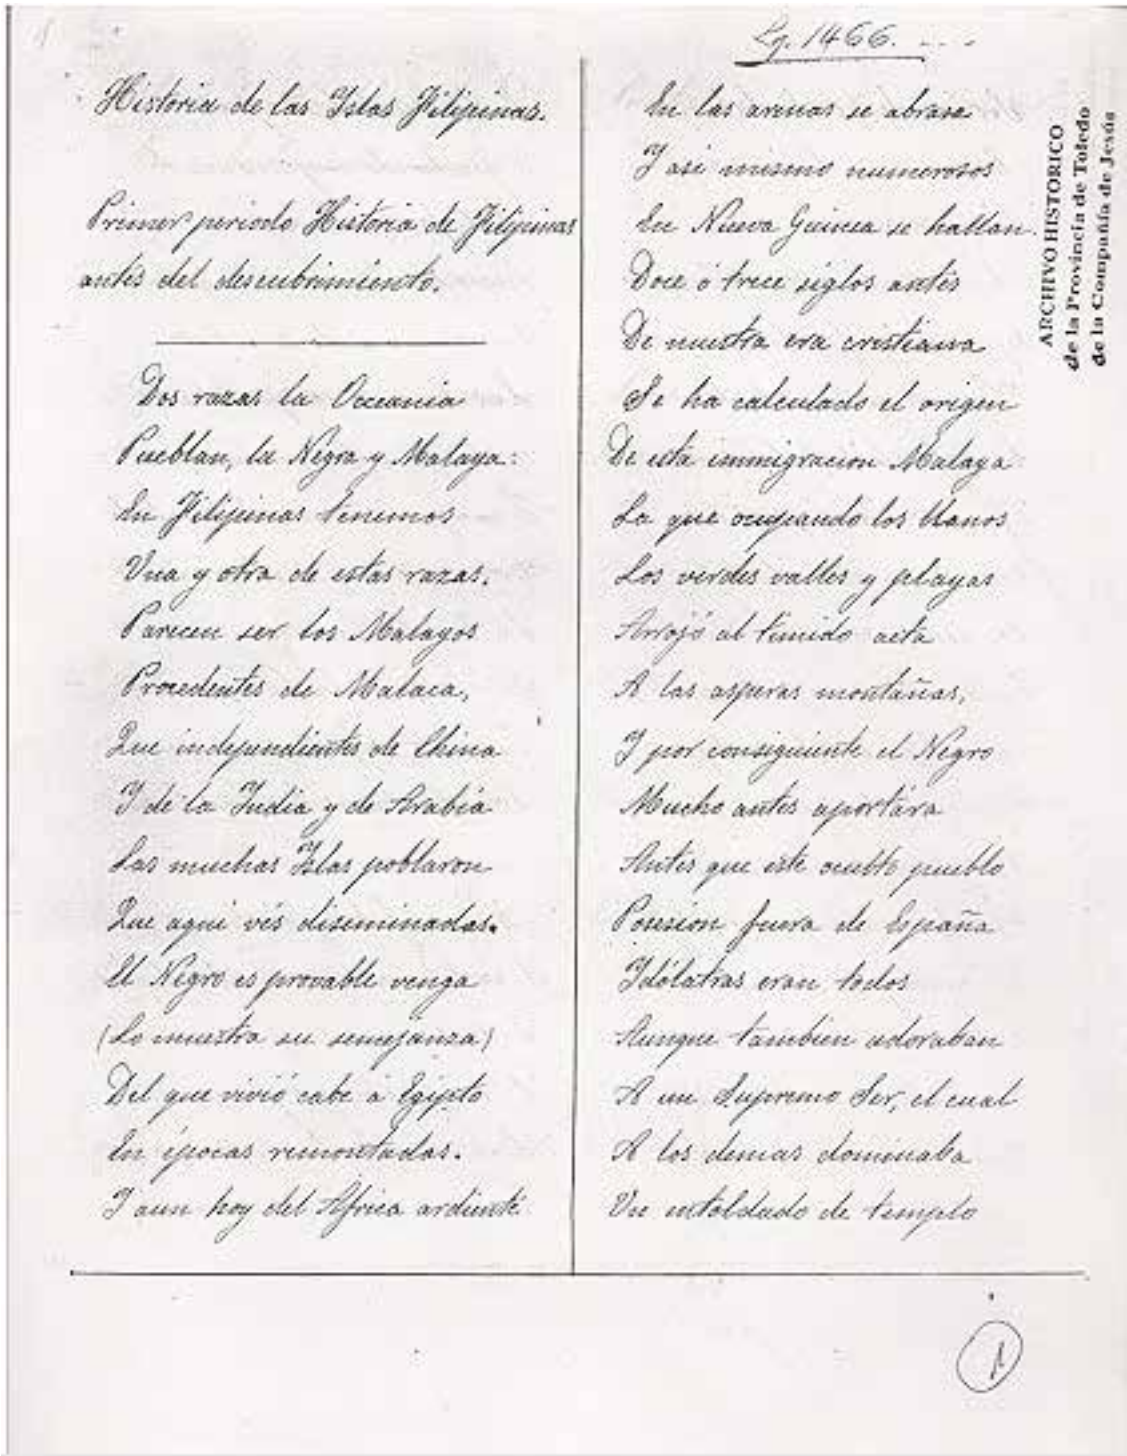 Lg. 1466.
Historia de las Islas Filipinas.
Primer periodo Historia de Filipinas
antes del descubrimiento.
Dos razas la Occeania
Pueblan, la Negra y Malaya:
En Filipinas tenemos
Una y otra de estas razas.
Parecen ser los Malayos
Procedentes de Malaca,
Que independientes de China
Y de la India y de Arabia
Las muchas Islas poblaron
Que aqui vés diseminadas.
El Negro es provable venga
(Lo muestra su semejanza)
Del que vivió cabe á Egipto
En épocas remontadas.
Y aun hoy del Africa ardiente
En las arenas se abrasa
Y asi mismo numerosos
En Nueva Guinea se hallan.
Doce ó trece siglos antes
De nuestra era cristiana
Se ha calculado el origen
De esta immigracion Malaya
La que ocupando los llanos
Los verdes valles y playas
Arrojó al timido aeta
A las asperas montañas,
Y por consiguiente el Negro
Mucho antes aportára
Antes que este pueblo
Posesion fuera de España
Idólatras eran todos
Aunque tambien adoraban
A un Supremo Ser, el cual
A los demas dominaba
Un entoldado de templo
ARCHIVO HISTORICO
de la Provincia de Toledo
de la Compañía de Jesús
1